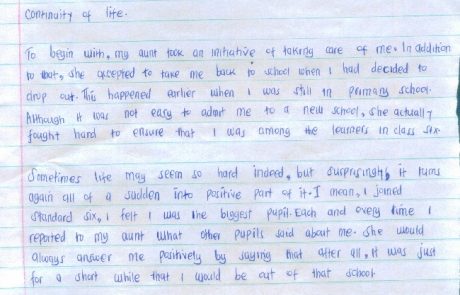 Continuity of life.
To begin with, my aunt took an initiative of taking care of me. In addition
to that, she accepted to take me back to school when I had decided to
drop out. This happened earlier when I was still in primary school.
Although it was not easy to admit me to a new school, she actually
fought hard to ensure that I was among the learners in class six.
Sometimes life may seem so hard indeed, but surprisingly it turns
again all of a sudden into positive part of it. I mean, I joined
Standard six, I felt I was the biggest pupil. Each and every time I
reported to my aunt what other pupils said about me. She would
always answer me positively by saying that after all, it was just
for a short while that I would be out of that school